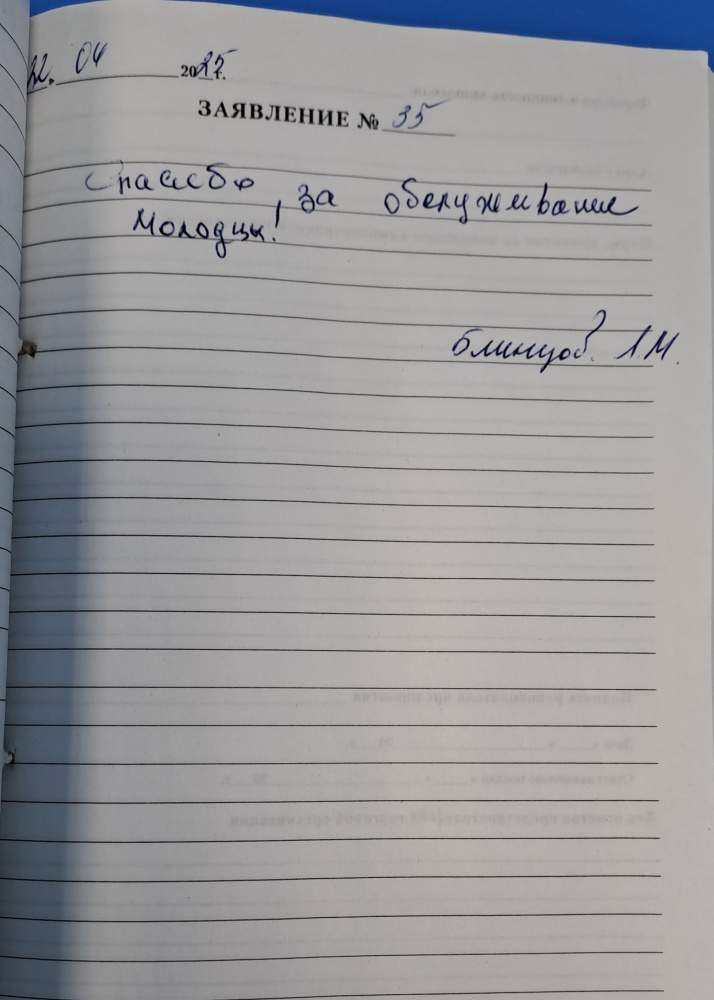 22. 04 2025 г.
ЗАЯВЛЕНИЕ № 35
Спасибо, за обслуживание
Молодцы!
Блинцов. Л.М.